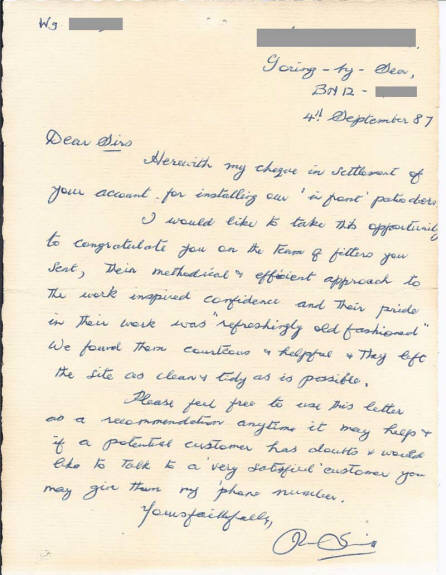 Wg
Goring - by - Sea,
BN12 -
4th September 87
Dear Sirs
Herewith my cheque in settlement of
your account for installing our 'in front' patiodoors
I would like to take this opportunity
to congratulate you on the team of fitters you
sent, their methodical & efficient approach to
the work inspired confidence and their pride
in their work was "refreshingly old fashioned"
We found them courteous & helpful & they left
the site as clean & tidy as is possible.
Please feel free to use this letter
as a recommendation anytime it may help &
if a potential customer has doubts & would
like to talk to a 'very satisfied' customer you
may give them my 'phone number.
Yours faithfully,